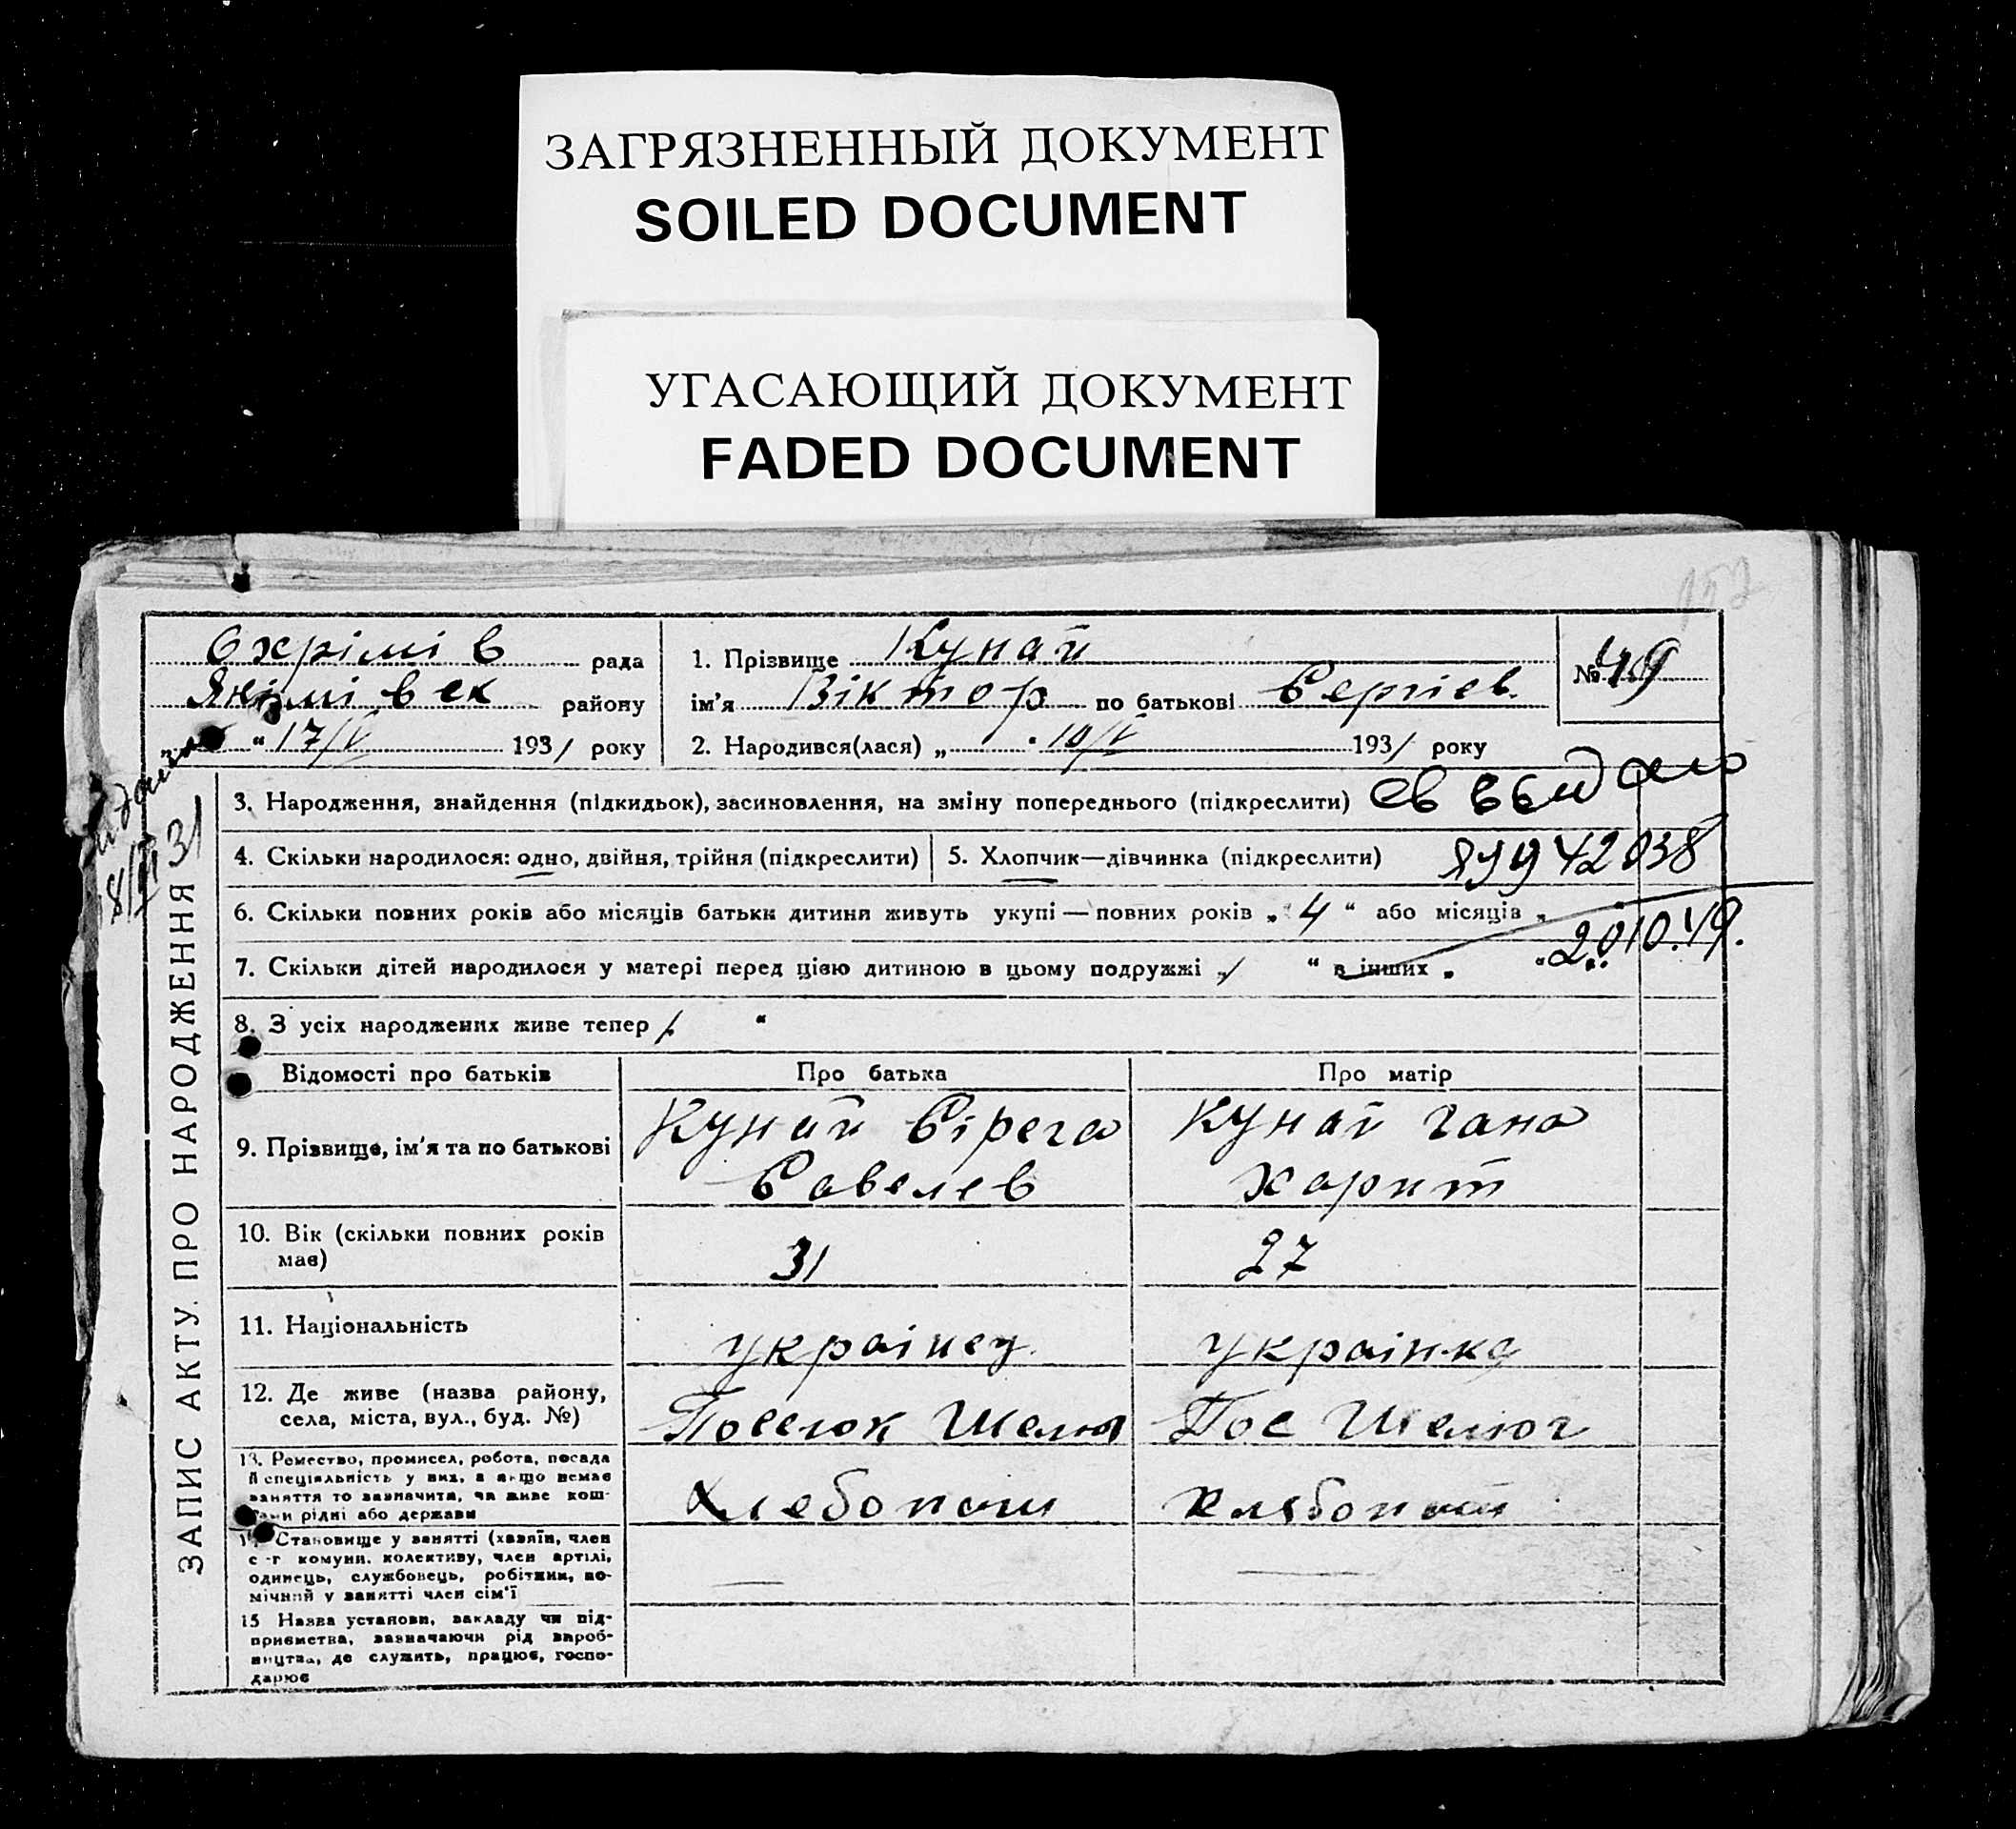 ЗАГРЯЗНЕННЫЙ ДОКУМЕНТ
SOILED DOCUMENT
УГАСАЮЩИЙ ДОКУМЕНТ
FADED DOCUMENT
157
Охрімів рада
Якімівск району
„ 17/V 1931 року
1. Прізвище Кунай
ім'я Віктор по батькові Сергіев.
2. Народився(лася) „ 10/V 1931 року
№ 49
31
ЗАПИС АКТУ ПРО НАРОДЖЕННЯ
3. Народження, знайдення (підкидьок), засиновлення, на зміну попереднього (підкреслити)
св выдано
4. Скільки народилося: одно, двійня, трійня (підкреслити)
5. Хлопчик—дівчинка (підкреслити)
942038
6. Скільки повних років або місяців батьки дитини живуть укупі — повних років „ 4 “ або місяців „
2010.49.
7. Скільки дітей народилося у матері перед цією дитиною в цьому подружжі „ / “ в інших „ “
8. З усіх народжених живе тепер /. “
Відомості про батьків
Про батька
Про матір
9. Прізвище, ім'я та по батькові
Кунай Сірега
Савелев
Кунай Гана
Харит
10. Вік (скільки повних років
має)
31
27
11. Національність
украінец
украінка
12. Де живе (назва району,
села, міста, вул., буд. №)
Поселок Шелюг
Пос Шелюг
13. Ремество, промисел, робота, посада
й спеціяльність у них, а якщо немає
заняття то зазначити, чи живе кош-
тами рідні або держави
Хлебопаш
Хлябопаш
14. Становище у занятті (хазяїн, член
с-г комуни, колективу, член артілі,
одинець, службовець, робітник, по-
мічний у занятті член сім'ї
15 Назва установи, закладу чи під-
приємства, зазначаючи рід вироб-
ництва, де служить, працює, госпо-
дарює